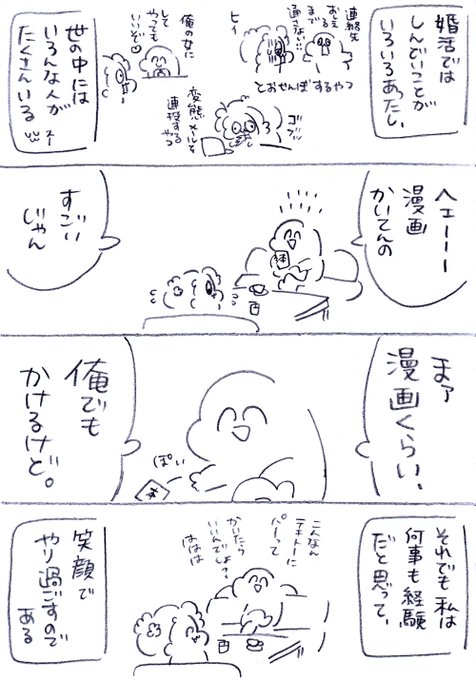 婚活では
しんどいことが
いろいろあったし、
連絡先
おしえる
まで
通さない…
ヒィ
とおせんぼするやつ
俺の女に
して
やっても
いいぞ♡
変態メールを
連投する
やつ
世の中には
いろんな人が
たくさんいる
ヘェーーー
漫画
かいてんの
すごい
じゃん
まァ
漫画くらい、
俺でも
かけるけど。
ぽい
それでも私は
何事も経験
だと思って、
こんなん
テキトーに
パーって
かいたら
いいんでしょ?
ははは
笑顔で
やり過ごすので
ある